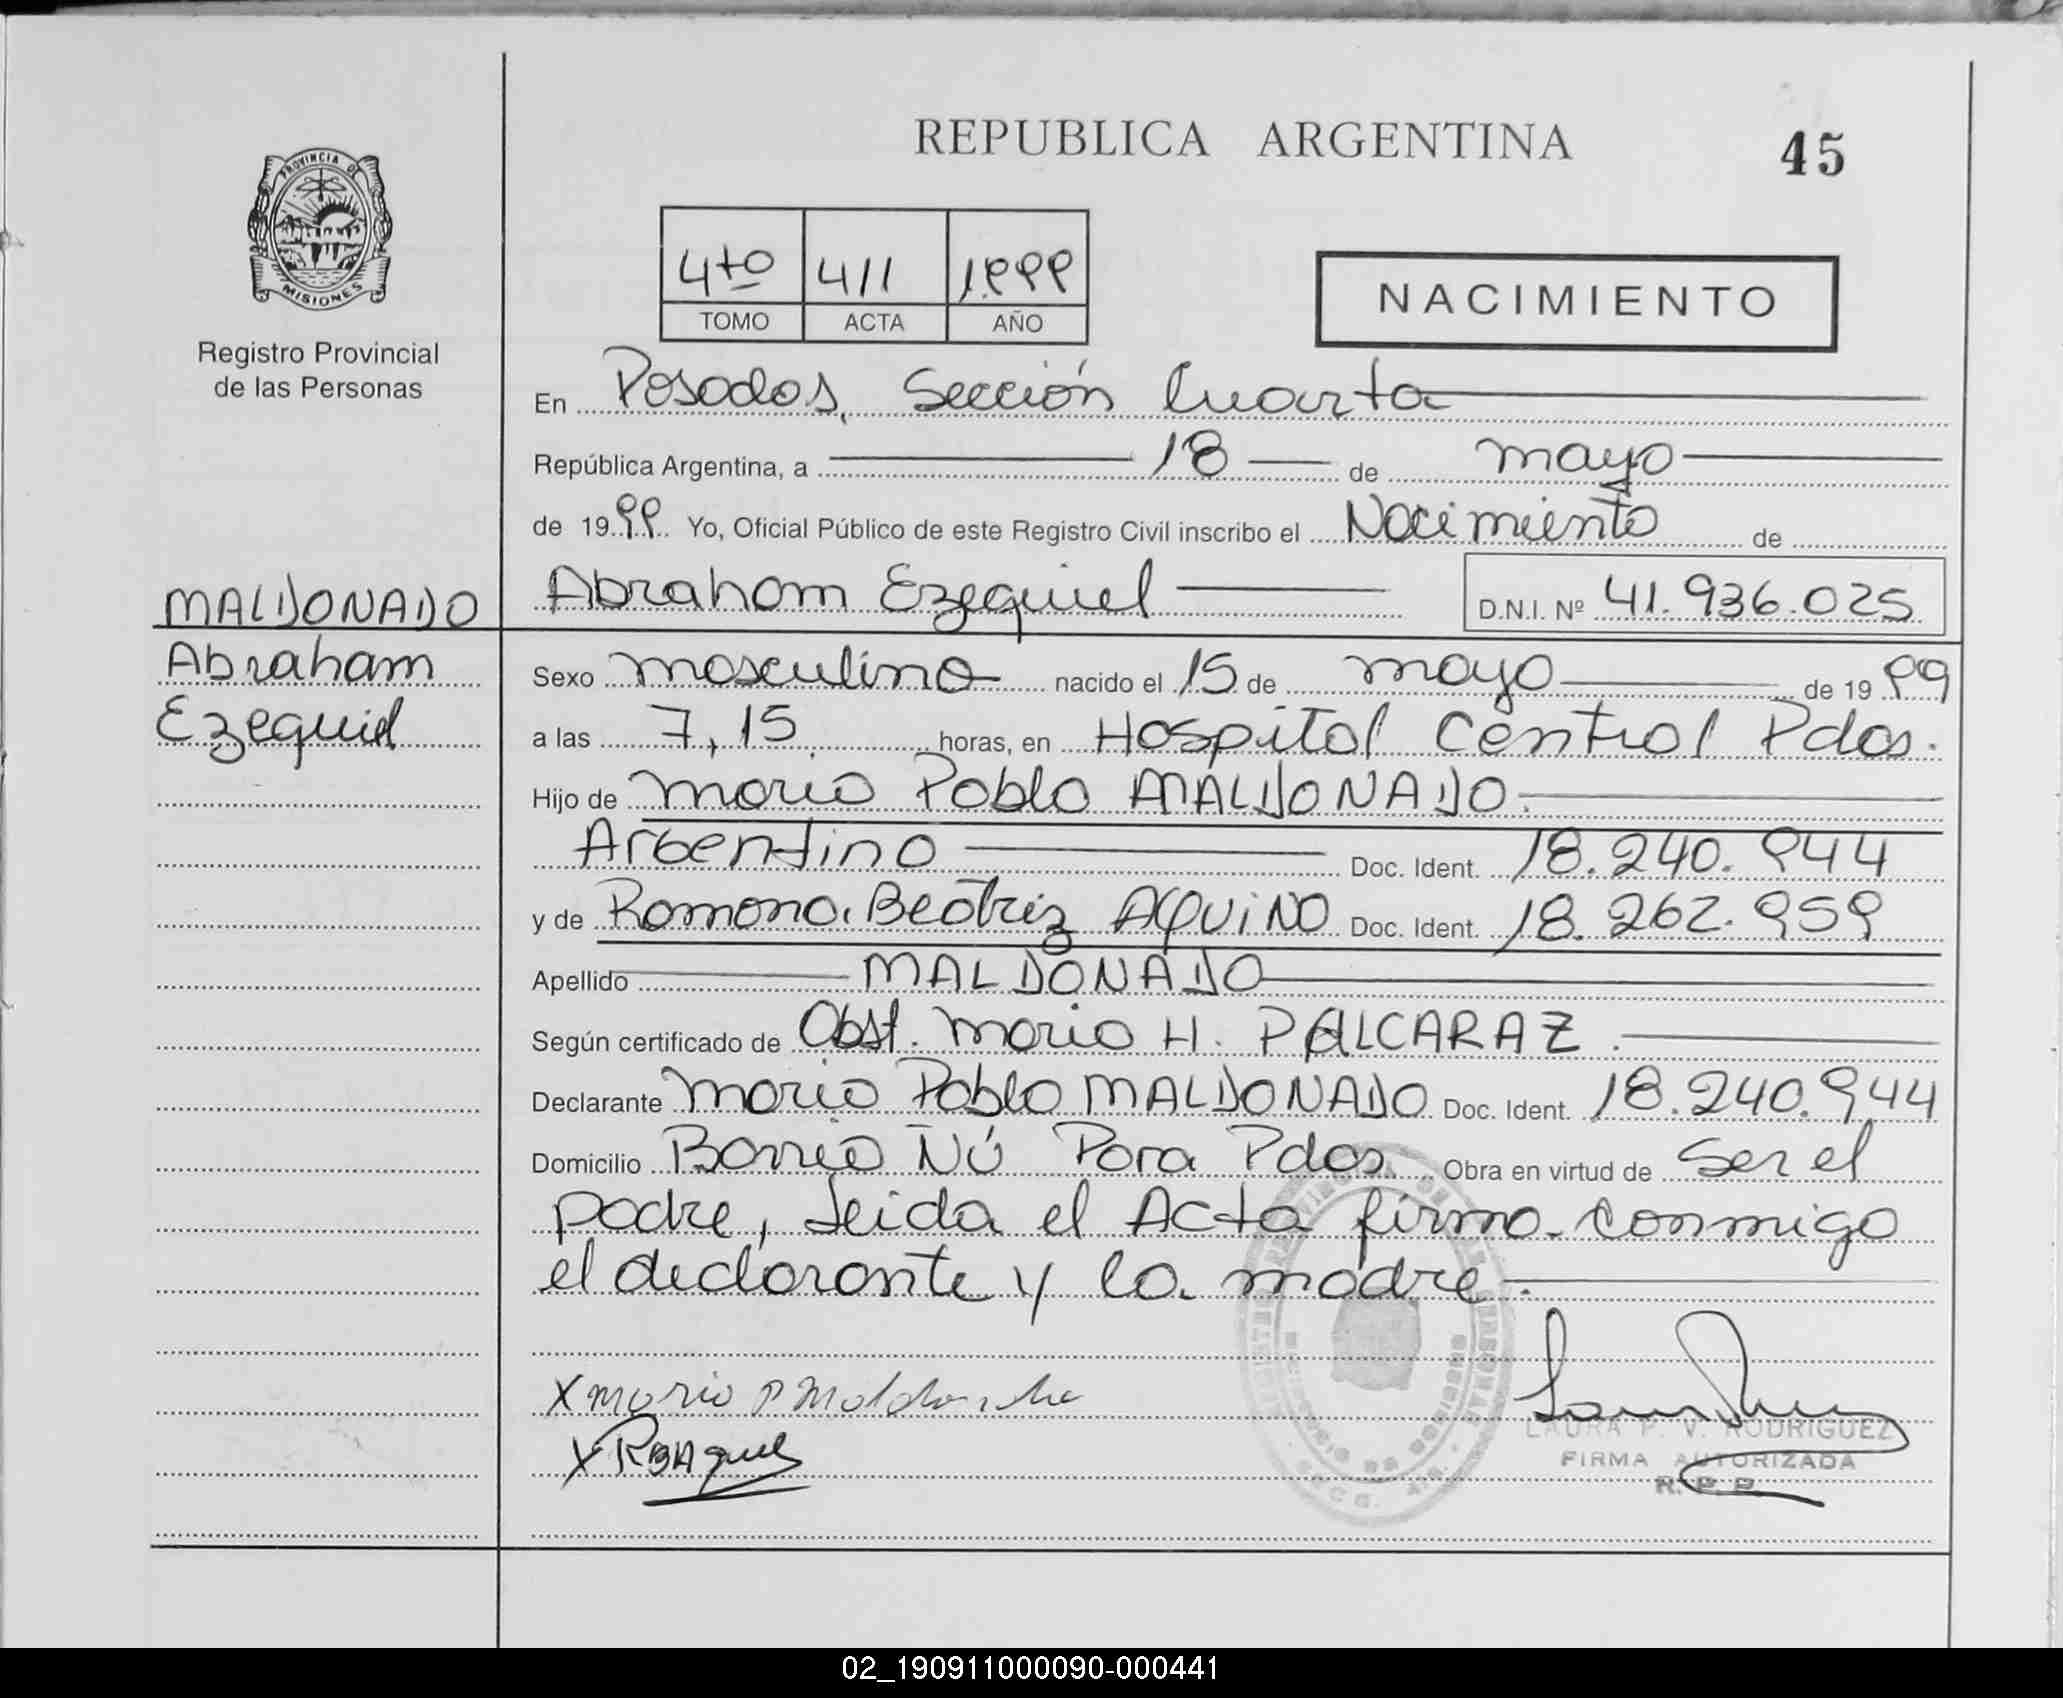 REPUBLICA ARGENTINA
45
PROVINCIA DE
MISIONES
Registro Provincial
de las Personas
4to 411 1.999
TOMO ACTA AÑO
NACIMIENTO
En Posadas, Sección Cuarta
República Argentina, a 18 de mayo
de 1999 Yo, Oficial Público de este Registro Civil inscribo el Nacimiento de
MALDONADO
Abraham
Ezequiel
Abraham Ezequiel D.N.I. Nº 41.936.025
Sexo masculino nacido el 15 de mayo de 1999
a las 7,15 horas, en Hospital Central Pdas.
Hijo de Mario Pablo MALDONADO.
Argentino Doc. Ident. 18.240.944
y de Ramona Beatriz AQUINO Doc. Ident. 18.262.959
Apellido MALDONADO
Según certificado de Obst. Mario H. PALCARAZ.
Declarante Mario Pablo MALDONADO Doc. Ident. 18.240.944
Domicilio Barrio Ñú Pora Pdas. Obra en virtud de Ser el
padre, Leida el Acta firma conmigo
el declarante y la madre.
X Mario P Maldonado
X RBAquino
LAURA P. V. RODRIGUEZ
FIRMA AUTORIZADA
R. P. P.
02_190911000090-000441